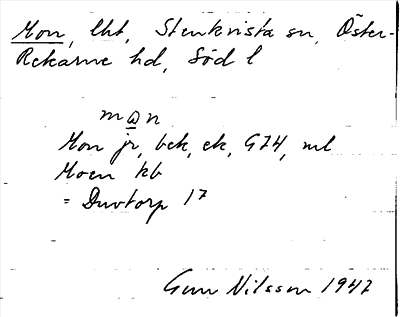 Mon, lht, Stenkvista sn, Öster-
Rekarne hd, Söd l
mωn
Mon jr, bek, ek, G74, ml
Moen kb
= Duvtorp 17
Gun Nilsson 1947